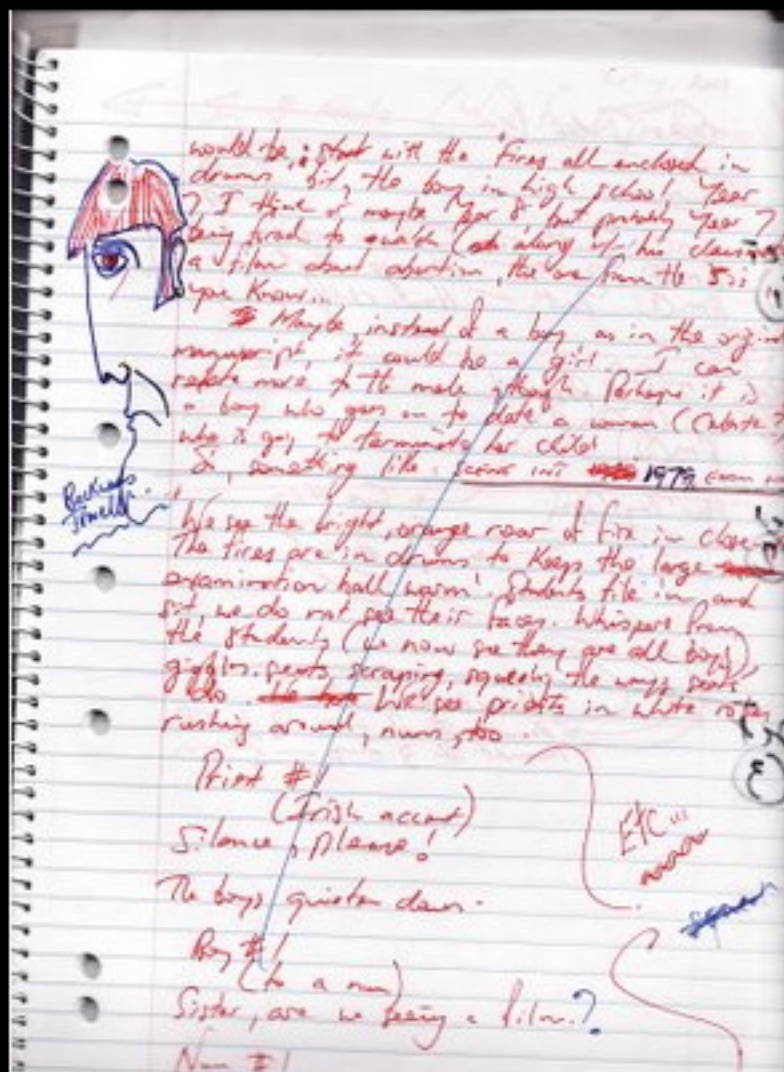 would be, start with the "Fires all enclosed in
drums" bit, the boy in high school Year
7 I think or maybe Year 8 but probably Year 7
being forced to watch ( along w/ his
a film about abortion, the one from the
you know...
Maybe, instead of a boy, as in the
manuscript, it could be a girl. I can
relate more to the male though. Perhaps it is
a boy who goes on to date a woman (
who is going to terminate her child
So, something like: SCENE INT 1979.
We see the bright, orange roar of fire in close
The fires are in drums to keep the large
examination hall warm. Students file in and
sit, we do not see their faces. Whispers from
the students (we now see they are all boys)
seats scraping, the way seats
do. We see priests in white robes,
rushing around, nuns, too.
Priest #1
(Irish accent)
Silence, please!
The boys quieten down.
Boy #1
(to a nun)
Sister, are we seeing a film?
Nun #1
Etc...